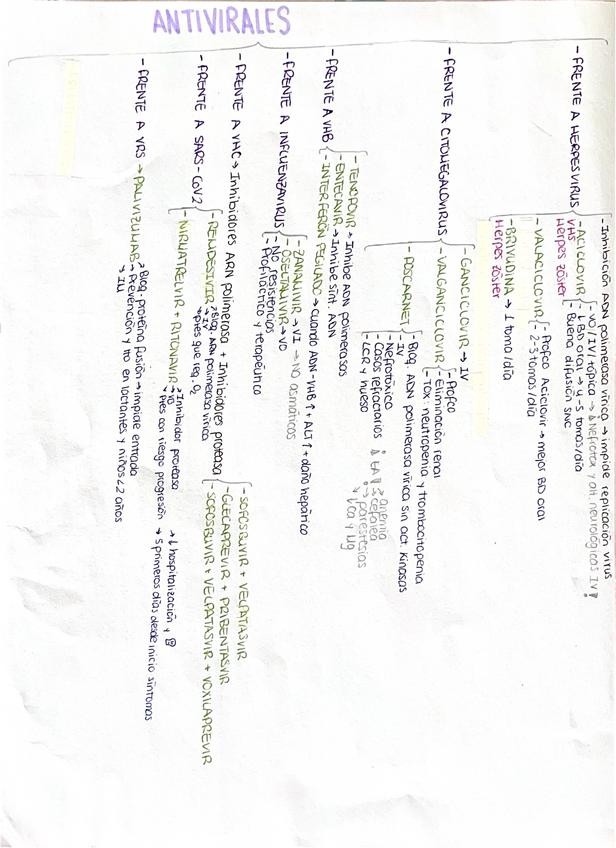 ANTIVIRALES
- FRENTE A HERPESVIRUS
- Inhibición ADN polimerasa vírica → impide replicación virus
- ACICLOVIR
VHS
Herpes zóster
- VO/IV/tópica → ↓ Nefrotox y alt. neurológicas IV!
- ↓ BD oral → 4-5 tomas/día
- Buena difusión SNC
- VALACICLOVIR
- Profco Aciclovir → mejor BD oral
- 2-3 tomas/día
- BRIVUDINA → 1 toma/día
Herpes zóster
- FRENTE A CITOMEGALOVIRUS
- GANCICLOVIR → IV
- VALGANCICLOVIR
- Profco
- Eliminación renal
- Tox: neutropenia y trombocitopenia
- FOSCARNET
- Bloq. ADN polimerasa vírica sin act. kinasas
- IV
- Nefrotóxico
- Casos refractarios
- LCR y hueso
anemia
cefalea
parestesias
↓ Ca y Mg
- FRENTE A VHB
- TENOFOVIR → Inhibe ADN polimerasas
- ENTECAVIR → Inhibe sínt. ADN
- INTERFERÓN PEGILADO → cuando ADN-VHB ↑ + ALT ↑ + daño hepático
- FRENTE A INFLUENZAVIRUS
- ZANAMIVIR → VI → no asmáticos
- OSELTAMIVIR → VO
- No resistencias
- Profiláctico y terapéutico
- FRENTE A VHC → Inhibidores ARN polimerasa + Inhibidores proteasa
- SOFOSBUVIR + VELPATASVIR
- GLECAPREVIR + PIBRENTASVIR
- SOFOSBUVIR + VELPATASVIR + VOXILAPREVIR
- FRENTE A SARS-CoV2
- REMDESIVIR
→ Bloq. ARN polimerasa vírica
→ IV
→ Ptes que req. O2
- NIRMATRELVIR + RITONAVIR
→ Inhibidor proteasa
→ VO
→ Ptes con riesgo progresión → 5 primeros días desde inicio síntomas
→ ↓ hospitalización y
- FRENTE A VRS → PALIVIZUMAB
→ Bloq. proteína fusión → impide entrada
→ Prevención y tto en lactantes y niños < 2 años
→ IM